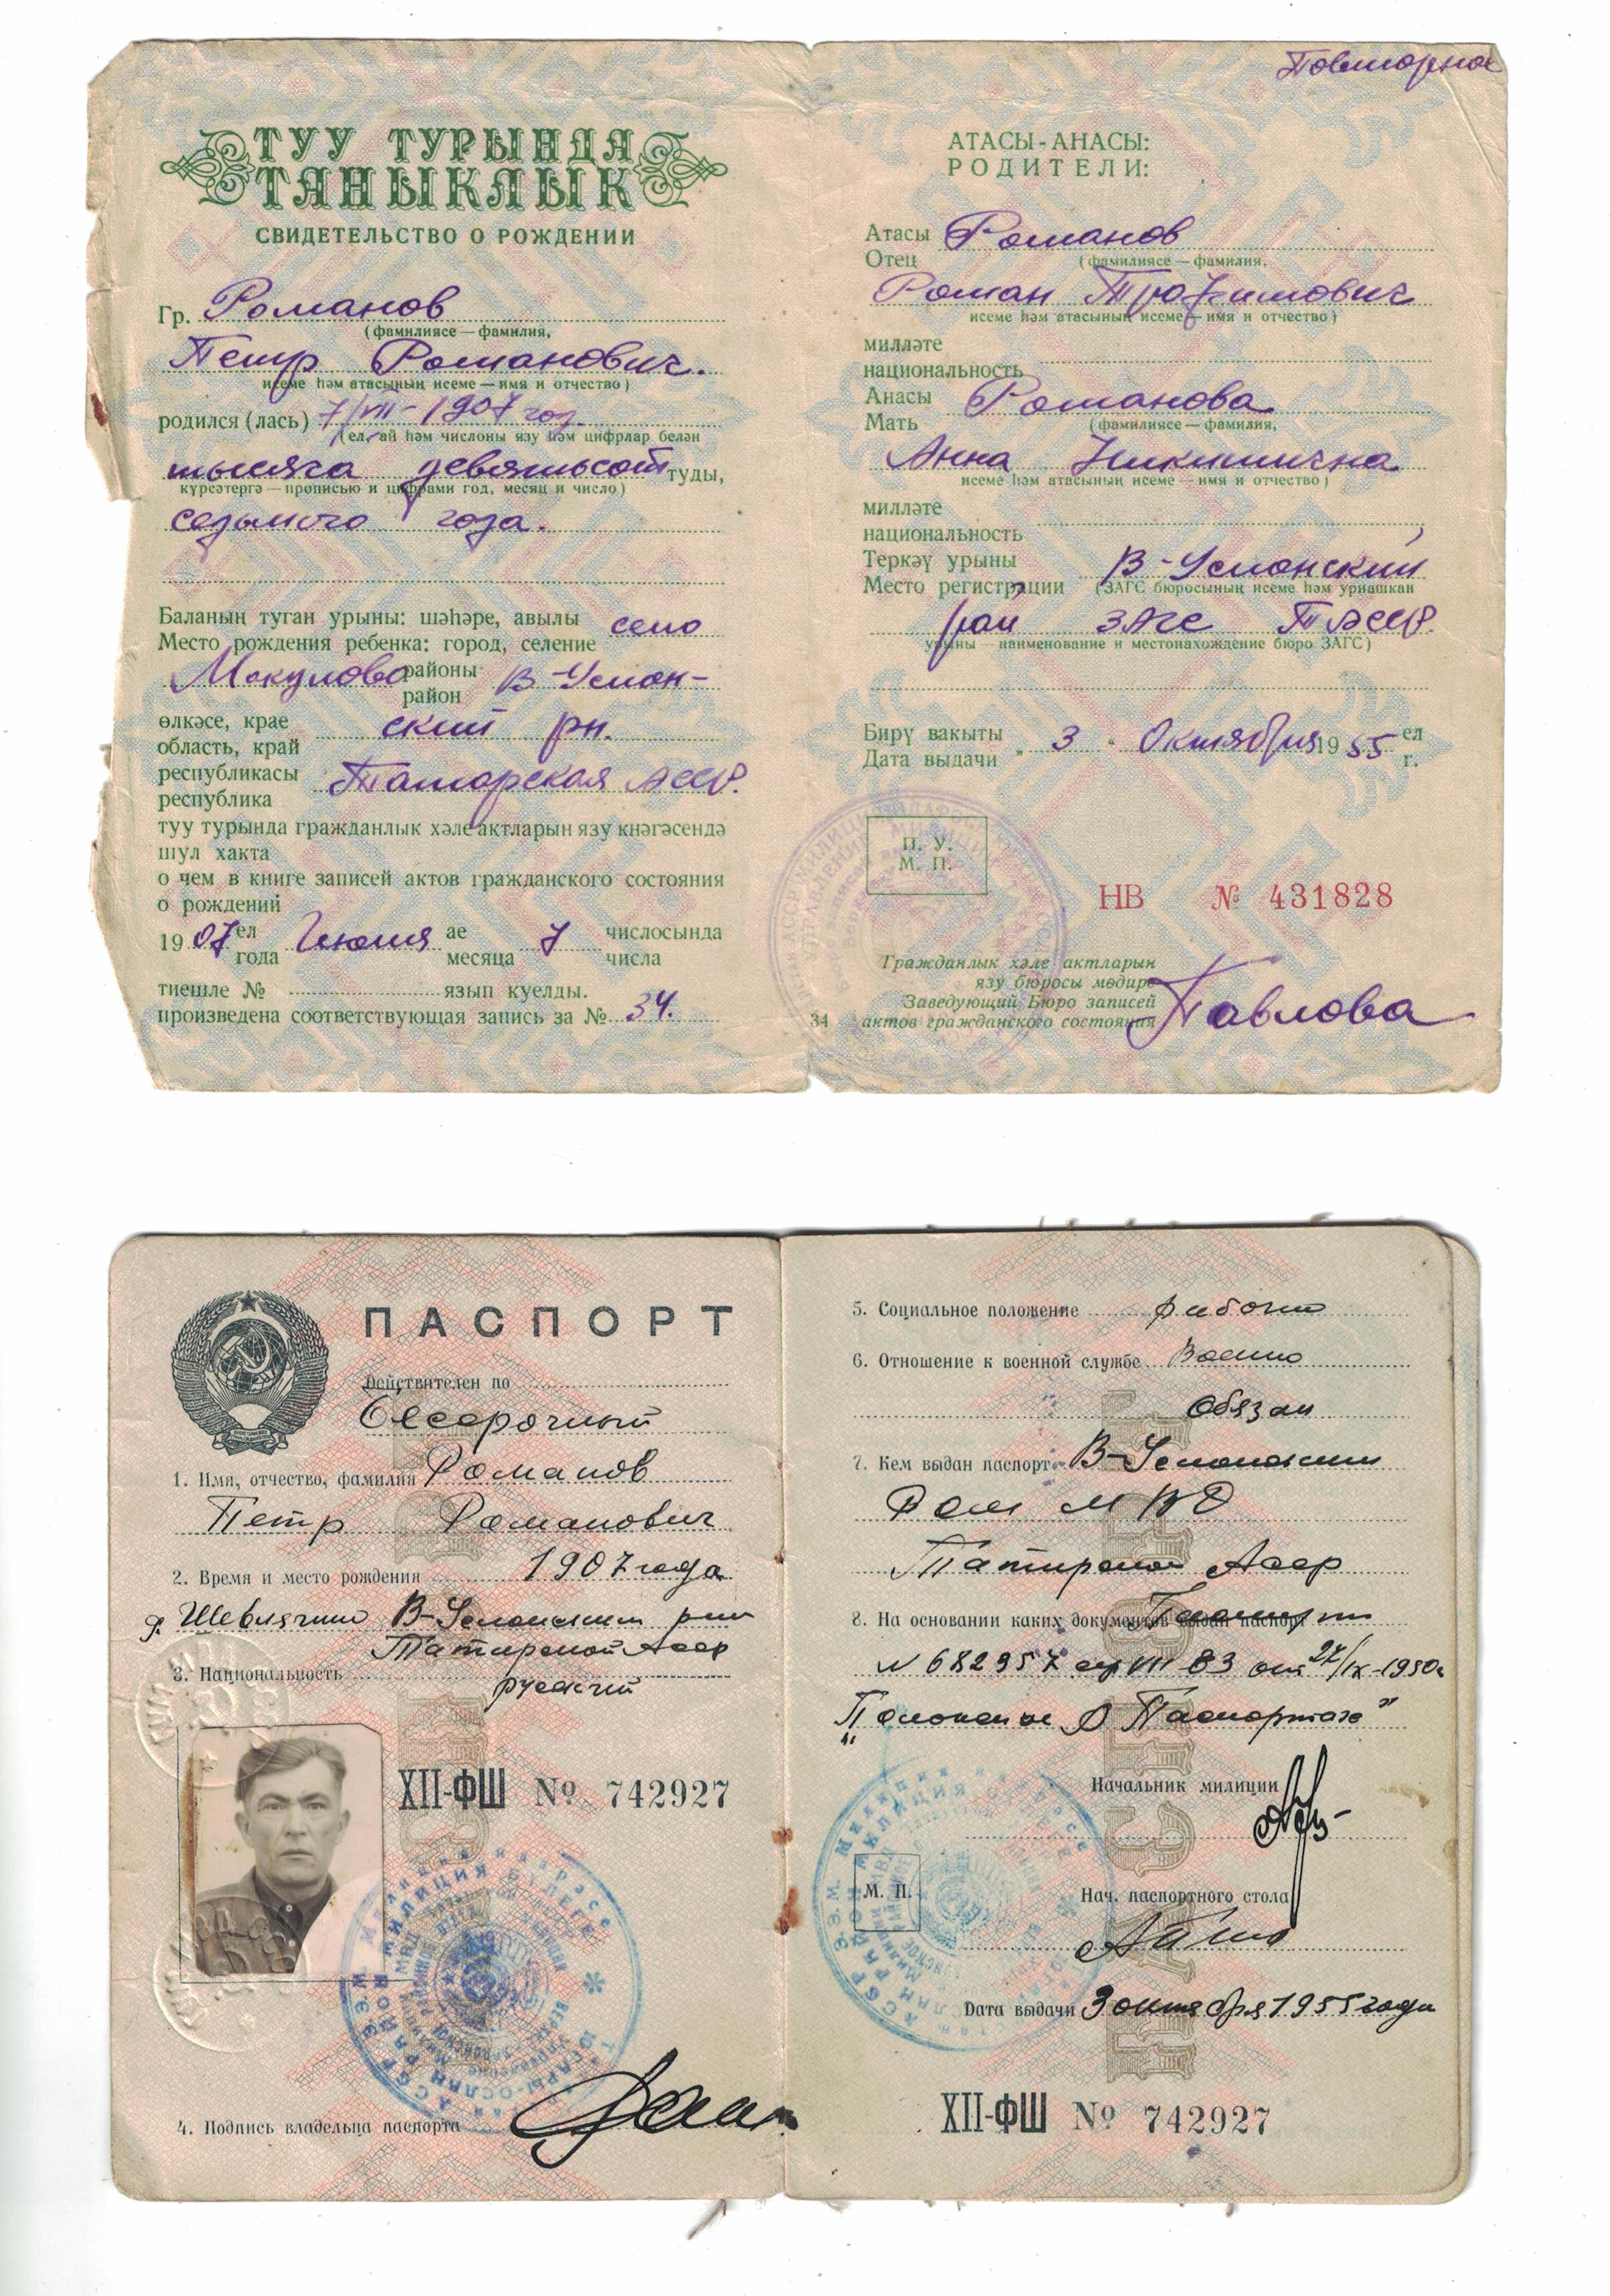 Повторное
ТУУ ТУРЫНДА
ТАНЫКЛЫК
СВИДЕТЕЛЬСТВО О РОЖДЕНИИ
Гр. Романов
(фамилиясе — фамилия,
Петр Романович.
исеме һәм атасының исеме — имя и отчество)
родился (лась) 7/VII - 1907 год
(ел, ай һәм числоны язу һәм цифрлар белән
тысяча девятьсот туды,
күрсәтергә — прописью и цифрами год, месяц и число)
седьмого года.
Баланың туган урыны: шәһәре, авылы село
Место рождения ребенка: город, селение
Макулово районы В-Услон-
район
өлкәсе, крае ский рн.
область, край
республикасы Татарская АССР.
республика
туу турында гражданлык хәле актларын язу кнәгәсендә
шул хакта
о чем в книге записей актов гражданского состояния
о рождений
19 07 ел Июля ае 7 числосында
года месяца числа
тиешле № язып куелды.
произведена соответствующая запись за № 34.
АТАСЫ-АНАСЫ:
РОДИТЕЛИ:
Атасы Романов
Отец (фамилиясе — фамилия,
Роман Трофимович
исеме һәм атасының исеме — имя и отчество)
милләте
национальность
Анасы Романова
Мать (фамилиясе — фамилия,
Анна Никитична
исеме һәм атасының исеме — имя и отчество)
милләте
национальность
Теркәү урыны В-Услонский
Место регистрации (ЗАГС бюросының исеме һәм урнашкан
рай ЗАГС ТАССР.
урыны — наименование и местонахождение бюро ЗАГС)
Бирү вакыты „ 3 “ Октября 19 55 ел
Дата выдачи г.
П. У.
М. П.
НВ № 431828
Гражданлык хәле актларын
язу бюросы мөдире
Заведующий Бюро записей
34 актов гражданского состояния Павлова
ПАСПОРТ
Действителен по
Бессрочный
1. Имя, отчество, фамилия Романов
Петр Романович
2. Время и место рождения 1907 года
В-Услонский
Татарской АССР
3. Национальность русский
XII-ФШ № 742927
4. Подпись владельца паспорта
5. Социальное положение рабочий
6. Отношение к военной службе Военно
обязан
7. Кем выдан паспорт В-Услонским
Ром МВД
Татарской АССР
8. На основании каких документов выдан паспорт Паспорта
№ 682957 VII 1950г
"Положение о Паспортах"
Начальник милиции
М. П.
Нач. паспортного стола
Дата выдачи 3 октября 1955 года
XII-ФШ № 742927